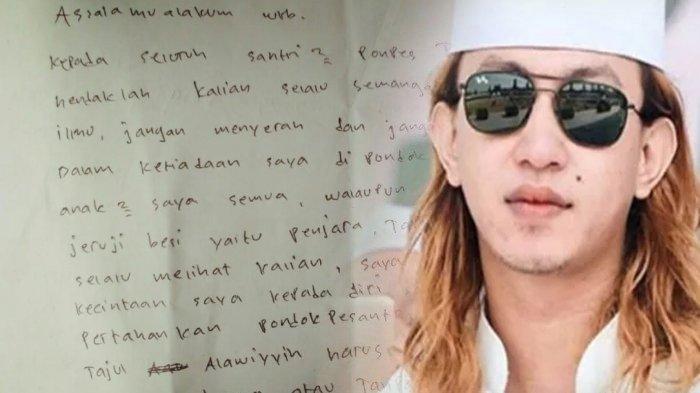 Assalamualakum wrb.
Kepada seluruh santri 2 Ponpes T
hendaklah kalian selalu semanga
ilmu, jangan menyerah dan jang
Dalam ketiadaan saya di Pondok
anak 2 saya semua, walaupun
jeruji besi yaitu penjara, Ta
selalu melihat kalian, saya
kecintaan saya kepada diri
Pertahankan pondok pesantr
Tajul Alawiyyin harus
atau